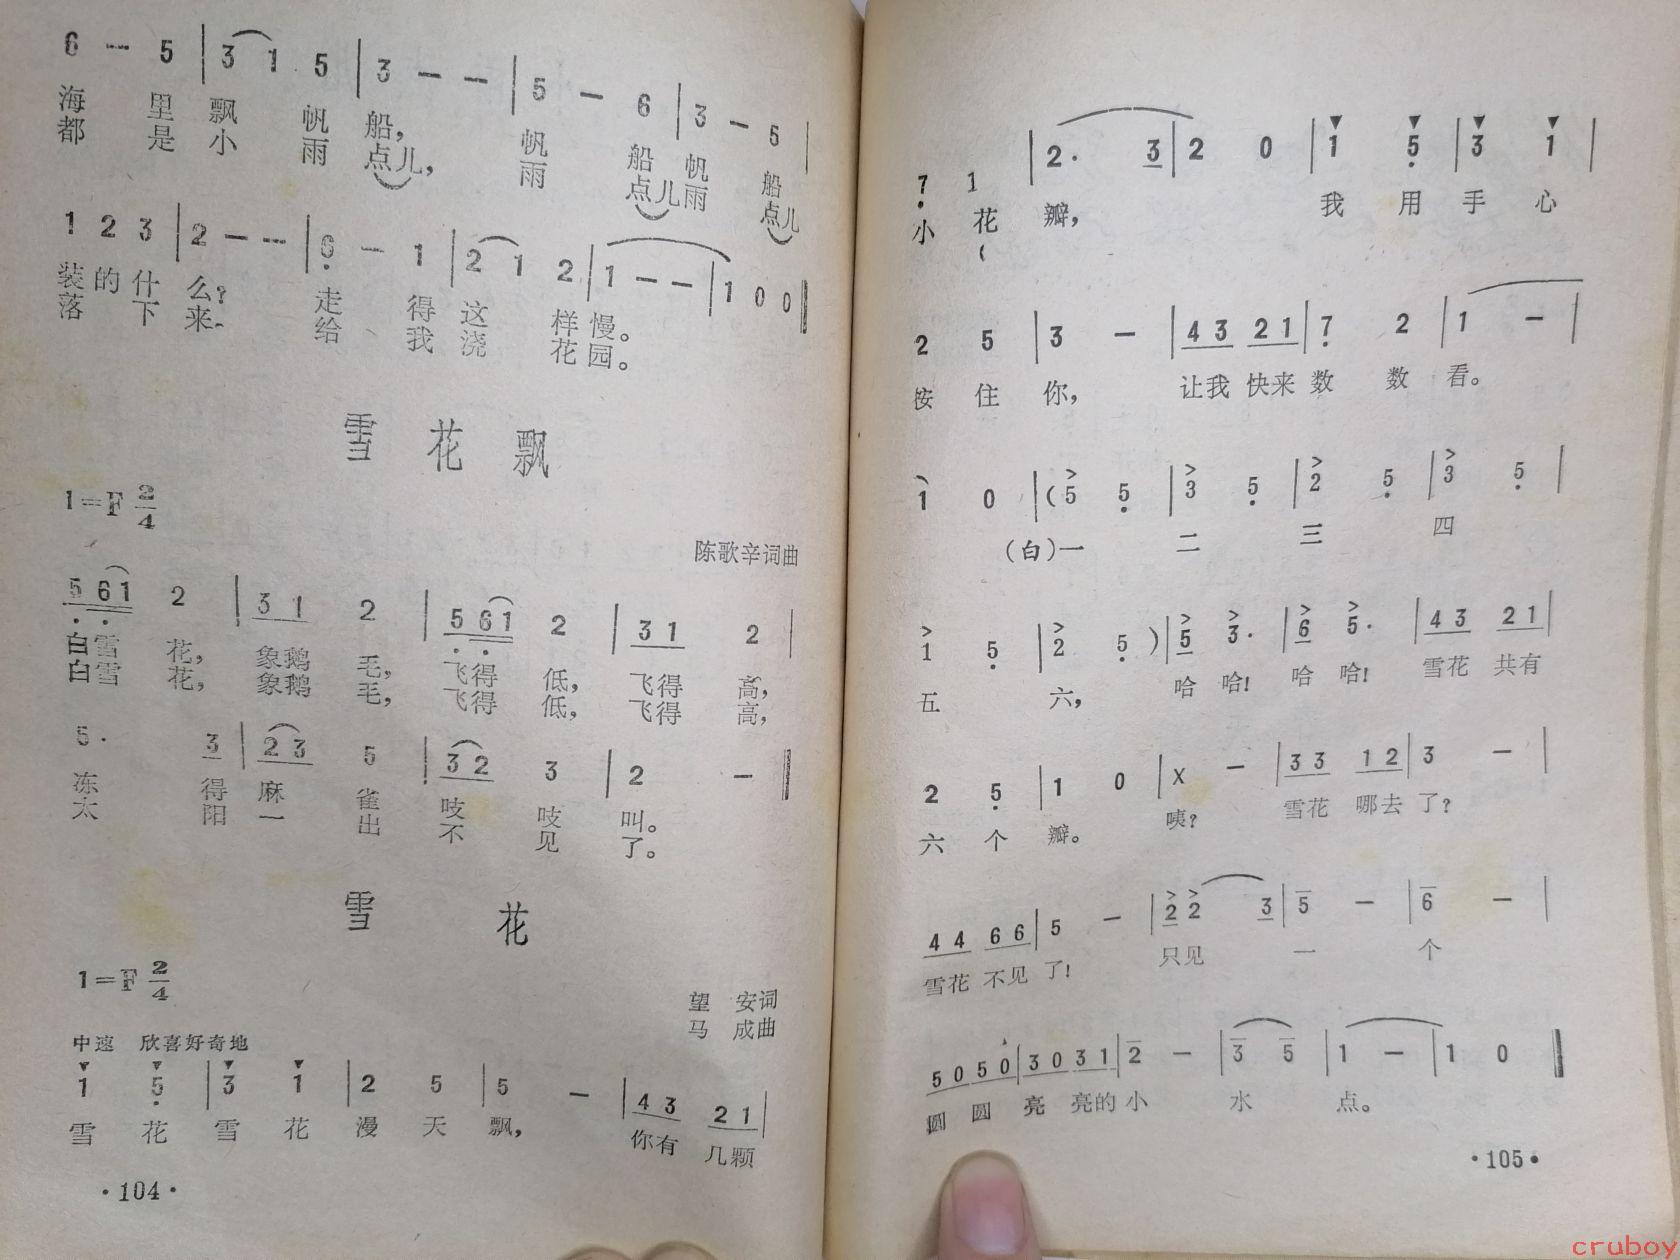 6 - 5 | 3 1 5 | 3 - - | 5 - 6 | 3 - 5 |
海 里 飘 帆 船， 帆 船 帆 船
都 是 小 雨 点儿， 雨 点儿 雨 点儿
1 2 3 | 2 - - | 6 - 1 | 2 1 2 | 1 - - | 1 0 0
装 的 什 么？ 走 得 这 样 慢。
落 下 来 给 我 浇 花 园。
雪花飘
1=F 2/4
陈歌辛词曲
5 6 1 2 | 3 1 2 | 5 6 1 2 | 3 1 2 |
白雪 花， 象鹅 毛， 飞得 低， 飞得 高，
白雪 花， 象鹅 毛， 飞得 低， 飞得 高，
5· 3 | 2 3 5 | 3 2 3 | 2 -
冻 得 麻 雀 吱 吱 叫。
太 阳 一 出 不 见 了。
雪 花
1=F 2/4
望 安词
马 成曲
中速 欣喜好奇地
1 5 | 3 1 | 2 5 | 5 - | 4 3 2 1 |
雪 花 雪 花 漫 天 飘， 你有 几颗
·104·
7 1 | 2· 3 | 2 0 | 1 5 | 3 1 |
小 花 瓣， 我 用 手 心
2 5 | 3 - | 4 3 2 1 | 7 2 | 1 - |
按 住 你， 让我 快来 数 数 看。
1 0 | (5 5 | 3 5 | 2 5 | 3 5 |
(白)一 二 三 四
1 5 | 2 5 ) | 5 3· | 6 5· | 4 3 2 1 |
五 六， 哈 哈! 哈 哈! 雪花 共有
2 5 | 1 0 | X - | 3 3 1 2 | 3 - |
六 个 瓣。 咦？ 雪花 哪去 了？
4 4 6 6 | 5 - | 2 2 3 | 5 - | 6 - |
雪花 不见 了! 只见 一 个
5 0 5 0 | 3 0 3 1 | 2 - | 3 5 | 1 - | 1 0
圆 圆 亮 亮的 小 水 点。
·105·
cruboy